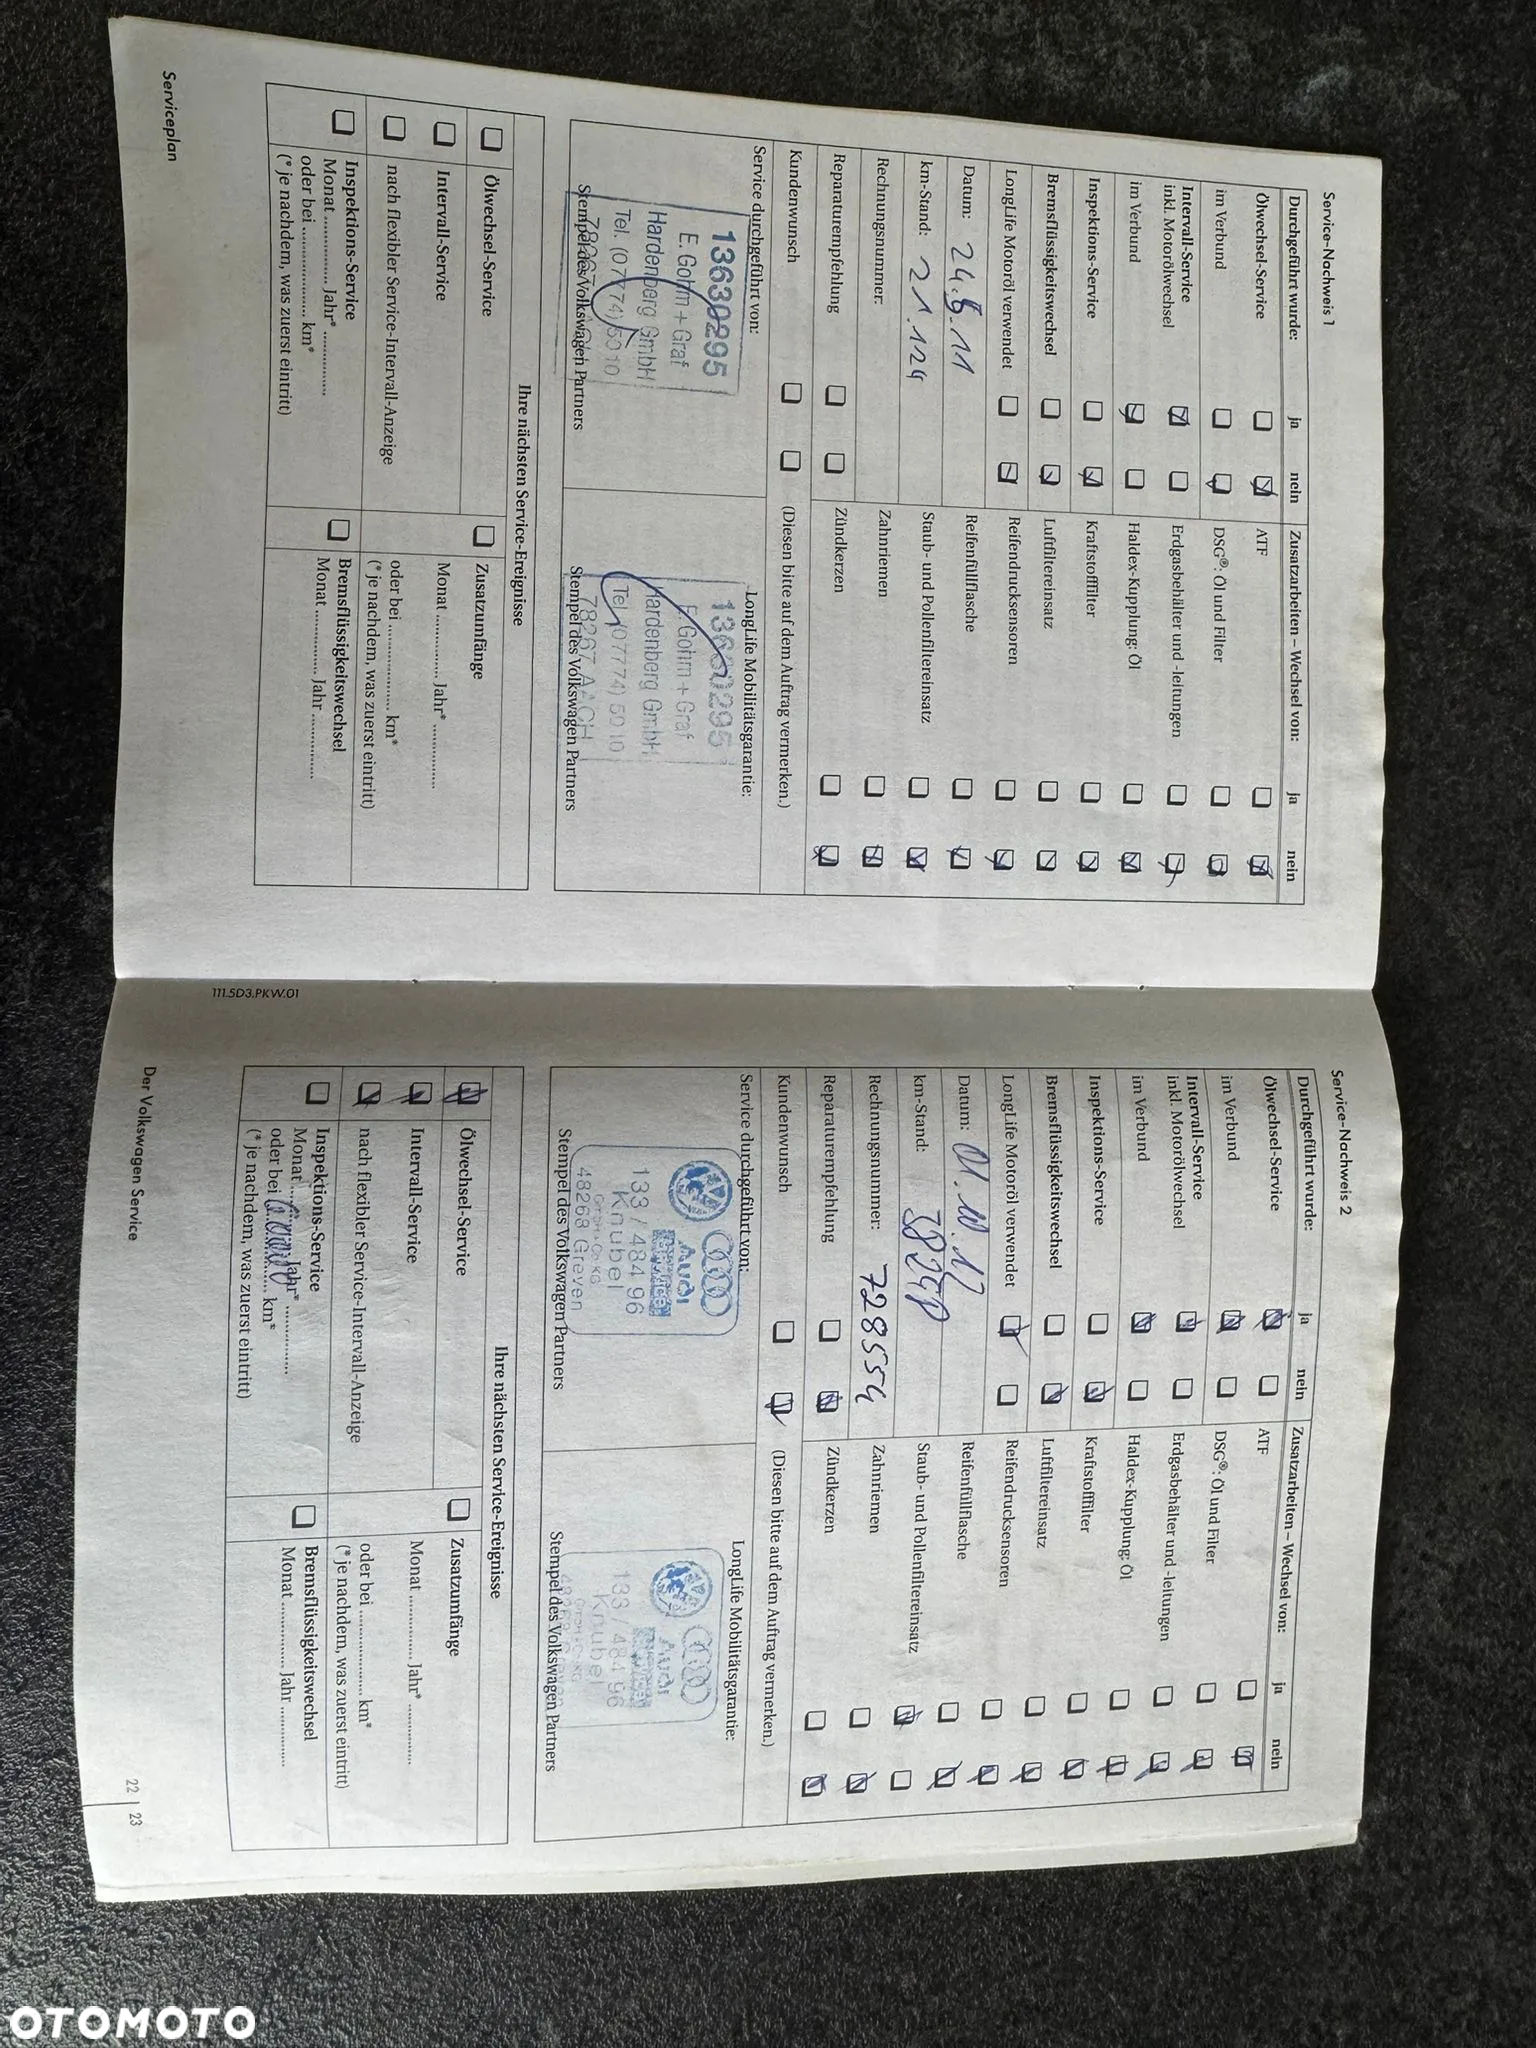 Service-Nachweis 1
Durchgeführt wurde: ja nein Zusatzarbeiten – Wechsel von: ja nein
Ölwechsel-Service ATF
im Verbund DSG®: Öl und Filter
Intervall-Service
inkl. Motorölwechsel Erdgasbehälter und -leitungen
im Verbund Haldex-Kupplung: Öl
Inspektions-Service Kraftstofffilter
Bremsflüssigkeitswechsel Luftfiltereinsatz
LongLife Motoröl verwendet Reifendrucksensoren
Datum: 24.5.11 Reifenfüllflasche
km-Stand: 21.124 Staub- und Pollenfiltereinsatz
Rechnungsnummer: Zahnriemen
Reparaturempfehlung Zündkerzen
Kundenwunsch (Diesen bitte auf dem Auftrag vermerken.)
Service durchgeführt von: LongLife Mobilitätsgarantie:
13630295 13630295
E. Gohm + Graf E. Gohm + Graf
Hardenberg GmbH Hardenberg GmbH
Tel. (07774) 5010 Tel. (07774) 5010
78267 AACH 78267 AACH
Stempel des Volkswagen Partners Stempel des Volkswagen Partners
Ihre nächsten Service-Ereignisse
Ölwechsel-Service Zusatzumfänge
Intervall-Service Monat ............ Jahr* ................
nach flexibler Service-Intervall-Anzeige oder bei .................... km*
(* je nachdem, was zuerst eintritt)
Inspektions-Service Bremsflüssigkeitswechsel
Monat ............ Jahr* ................ Monat ............ Jahr ................
oder bei .................... km*
(* je nachdem, was zuerst eintritt)
Serviceplan
111.5D3.PKW.01
Service-Nachweis 2
Durchgeführt wurde: ja nein Zusatzarbeiten – Wechsel von: ja nein
Ölwechsel-Service ATF
im Verbund DSG®: Öl und Filter
Intervall-Service
inkl. Motorölwechsel Erdgasbehälter und -leitungen
im Verbund Haldex-Kupplung: Öl
Inspektions-Service Kraftstofffilter
Bremsflüssigkeitswechsel Luftfiltereinsatz
LongLife Motoröl verwendet Reifendrucksensoren
Datum: 01.10.12 Reifenfüllflasche
km-Stand: Staub- und Pollenfiltereinsatz
Rechnungsnummer: 728554 Zahnriemen
Reparaturempfehlung Zündkerzen
Kundenwunsch (Diesen bitte auf dem Auftrag vermerken.)
Service durchgeführt von: LongLife Mobilitätsgarantie:
AUDI AUDI
Service
133 / 484 96 133 / 484 96
Knubel Knubel
GmbH + Co. KG GmbH + Co. KG
48268 Greven 48268 Greven
Stempel des Volkswagen Partners Stempel des Volkswagen Partners
Ihre nächsten Service-Ereignisse
Ölwechsel-Service Zusatzumfänge
Intervall-Service Monat ............ Jahr* ................
nach flexibler Service-Intervall-Anzeige oder bei .................... km*
(* je nachdem, was zuerst eintritt)
Inspektions-Service Bremsflüssigkeitswechsel
Monat ............ Jahr* ................ Monat ............ Jahr ................
oder bei km*
(* je nachdem, was zuerst eintritt)
Der Volkswagen Service 22 | 23
OTOMOTO